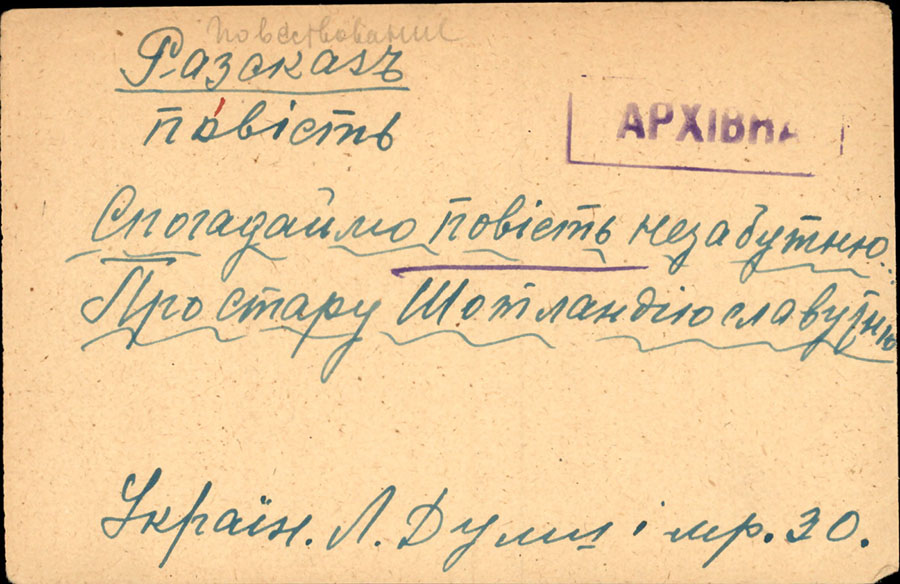 повествование
Разсказъ
АРХІВНА
повість
Спогадаймо повість незабутню...
Про стару Шотландію славутню
Україн. Л. Думи і мр. 30.